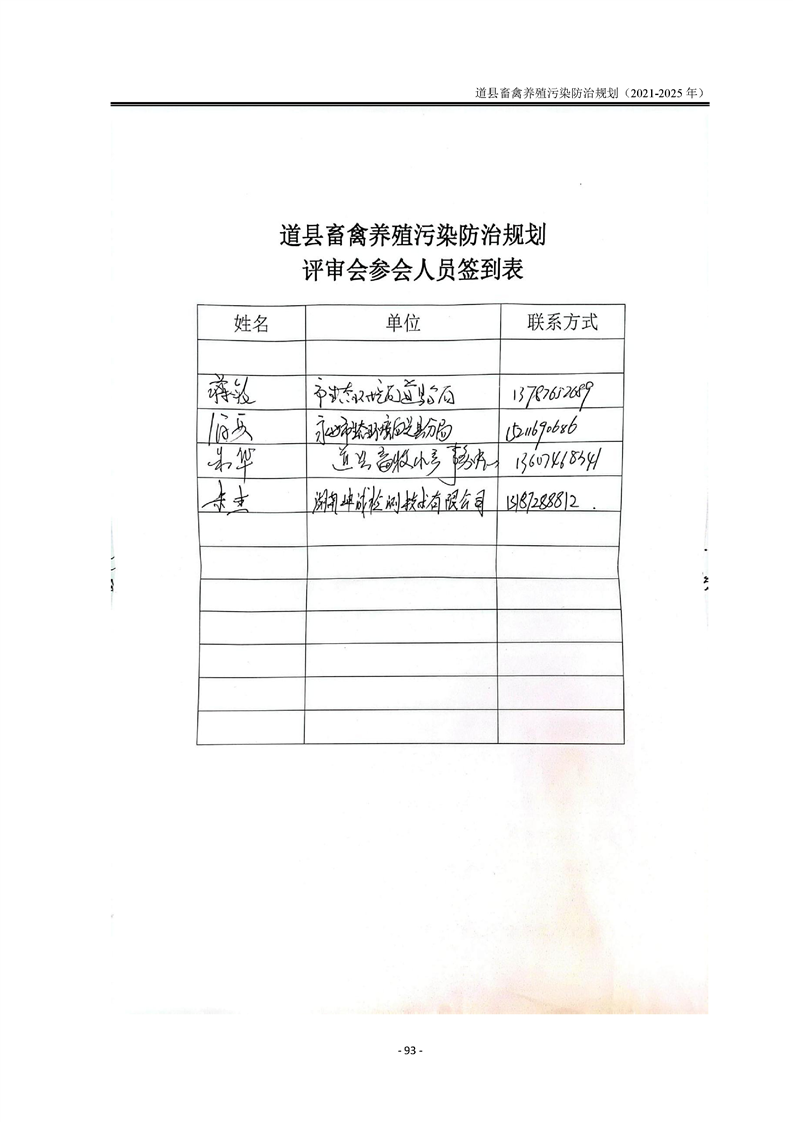 道县畜禽养殖污染防治规划（2021-2025 年）
道县畜禽养殖污染防治规划
评审会参会人员签到表
姓名 单位 联系方式
市生态环境局道县分局 13787652689
永州市生态环境局道县分局 15211690686
朱华 道县畜牧水产事务中心 13607468341
朱杰 湖南坤诚检测技术有限公司 13187288812.
- 93 -